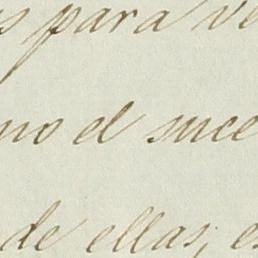 s para ve
no el suce
de ellas, es